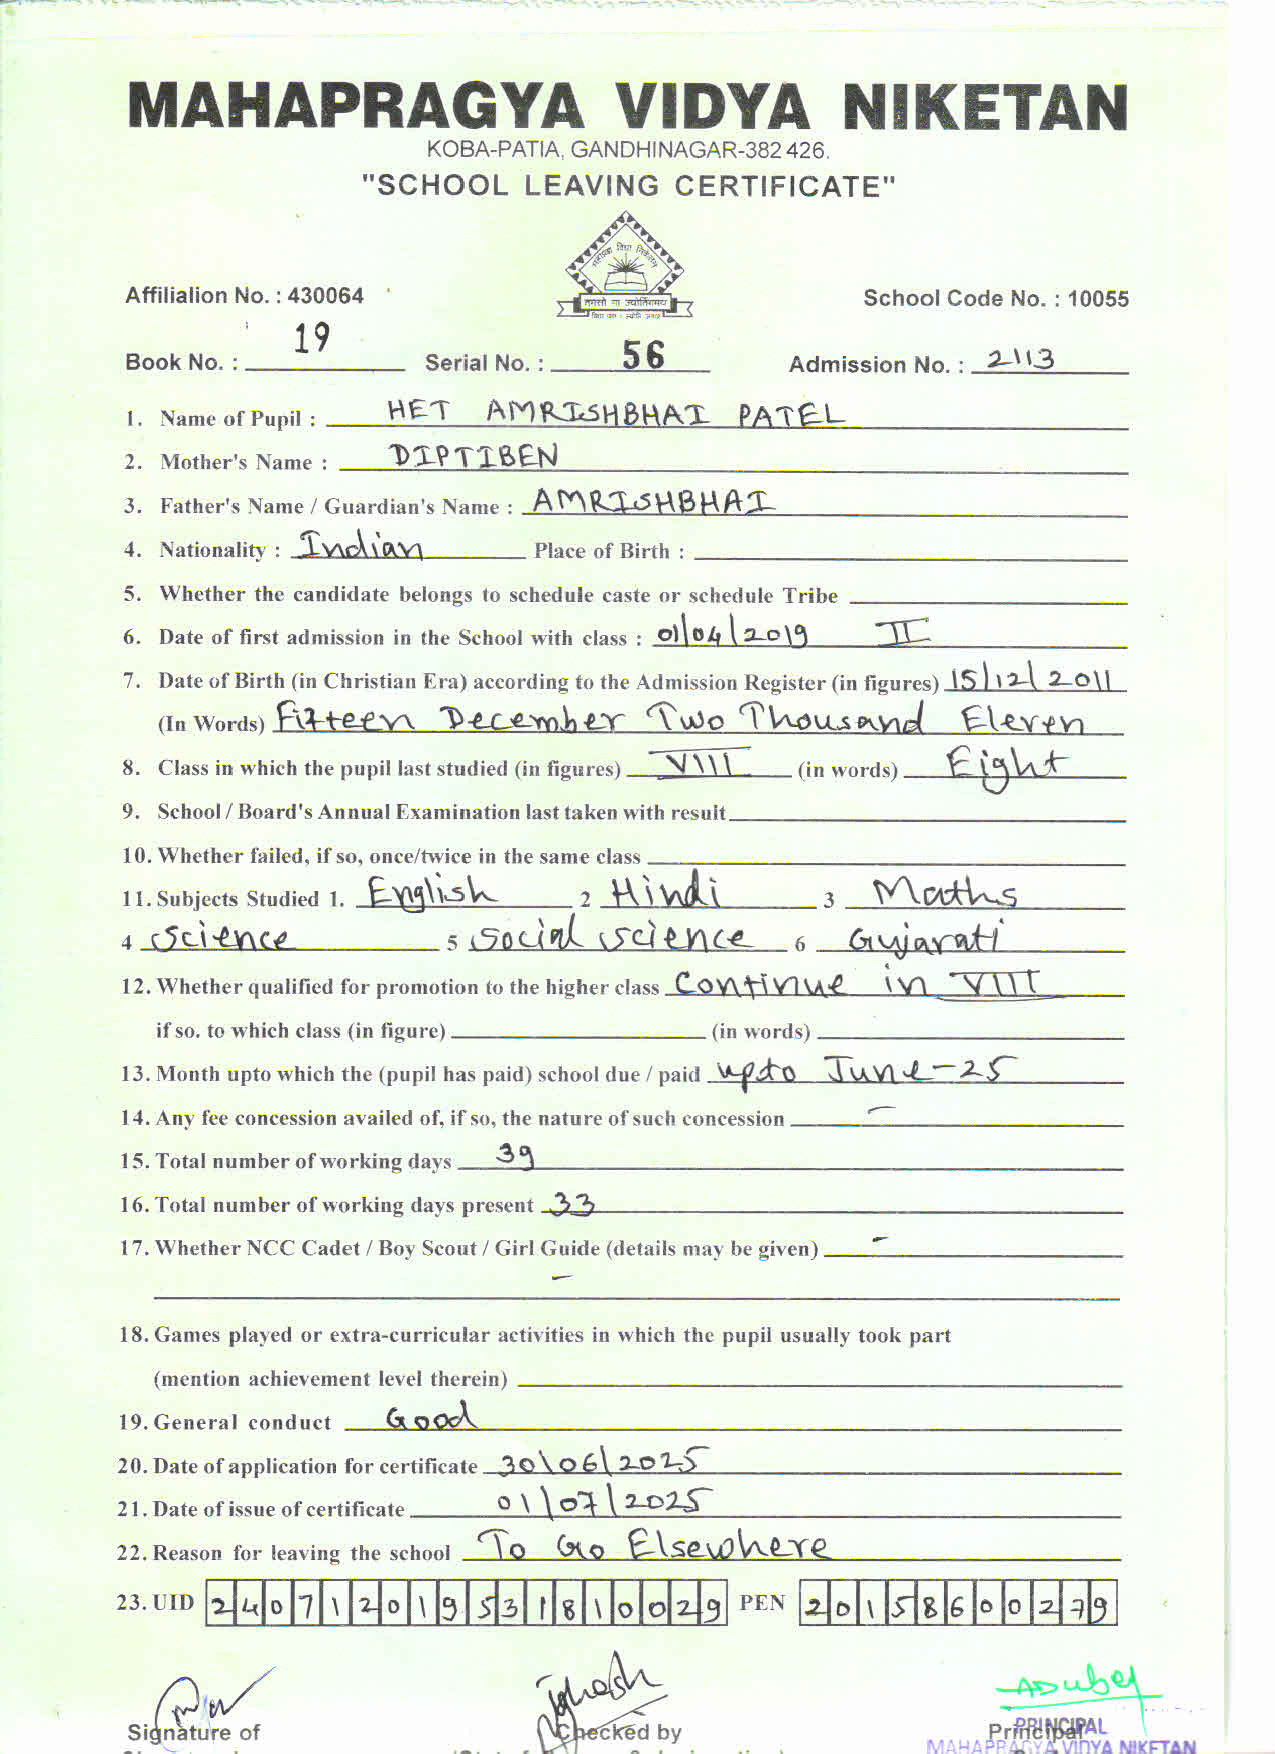 MAHAPRAGYA VIDYA NIKETAN
KOBA-PATIA, GANDHINAGAR-382 426.
"SCHOOL LEAVING CERTIFICATE"
महाप्रज्ञ विद्या निकेतन
तमसो मा ज्योतिर्गमय
Affilialion No. : 430064 School Code No. : 10055
Book No. : 19 Serial No. : 56 Admission No. : 2113
1. Name of Pupil : HET AMRISHBHAI PATEL
2. Mother's Name : DIPTIBEN
3. Father's Name / Guardian's Name : AMRISHBHAI
4. Nationality : Indian Place of Birth :
5. Whether the candidate belongs to schedule caste or schedule Tribe
6. Date of first admission in the School with class : 01/04/2019 II
7. Date of Birth (in Christian Era) according to the Admission Register (in figures) 15/12/2011
(In Words) Fifteen December Two Thousand Eleven
8. Class in which the pupil last studied (in figures) VIII (in words) Eight
9. School / Board's Annual Examination last taken with result
10. Whether failed, if so, once/twice in the same class
11. Subjects Studied 1. English 2 Hindi 3 Maths
4 Science 5 Social Science 6 Gujarati
12. Whether qualified for promotion to the higher class Continue in VIII
if so. to which class (in figure) (in words)
13. Month upto which the (pupil has paid) school due / paid upto June-25
14. Any fee concession availed of, if so, the nature of such concession -
15. Total number of working days 39
16. Total number of working days present 33
17. Whether NCC Cadet / Boy Scout / Girl Guide (details may be given) -
-
18. Games played or extra-curricular activities in which the pupil usually took part
(mention achievement level therein)
19. General conduct Good
20. Date of application for certificate 30\06/2025
21. Date of issue of certificate 01\07/2025
22. Reason for leaving the school To Go Elsewhere
23. UID 240712019531810029 PEN 20158600279
ADubey
Signature of Checked by Principal
PRINCIPAL
MAHAPRAGYA VIDYA NIKETAN